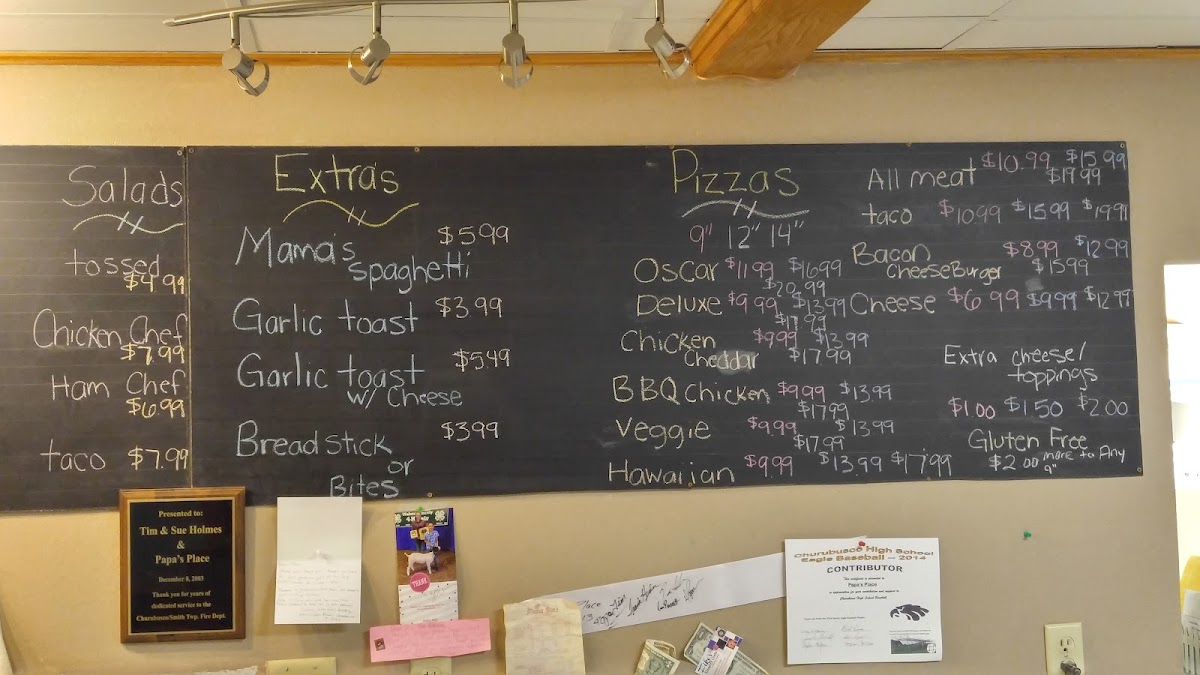 Salads
tossed
$4.99
Chicken Chef
$7.99
Ham Chef
$6.99
taco $7.99
Extra's
Mama's $5.99
spaghetti
Garlic toast $3.99
Garlic toast $5.49
w/ Cheese
Breadstick $3.99
or
Bites
Pizzas
9" 12" 14"
Oscar $11.99 $16.99
$20.99
Deluxe $9.99 $13.99
$17.99
Chicken $9.99 $13.99
Cheddar $17.99
BBQ Chicken $9.99 $13.99
$17.99
Veggie $9.99 $13.99
$17.99
Hawaiian $9.99 $13.99 $17.99
All meat $10.99 $15.99
$19.99
taco $10.99 $15.99 $19.99
Bacon $8.99 $12.99
CheeseBurger $15.99
Cheese $6.99 $9.99 $12.99
Extra cheese/
toppings
$1.00 $1.50 $2.00
Gluten Free
$2.00 more to Any
9"
Presented to:
Tim & Sue Holmes
&
Papa's Place
December 8, 2003
Thank you for years of
dedicated service to the
Churubusco/Smith Twp. Fire Dept.
THANK
Place
Churubusco High School
Eagle Baseball - 2014
CONTRIBUTOR
Papa's Place